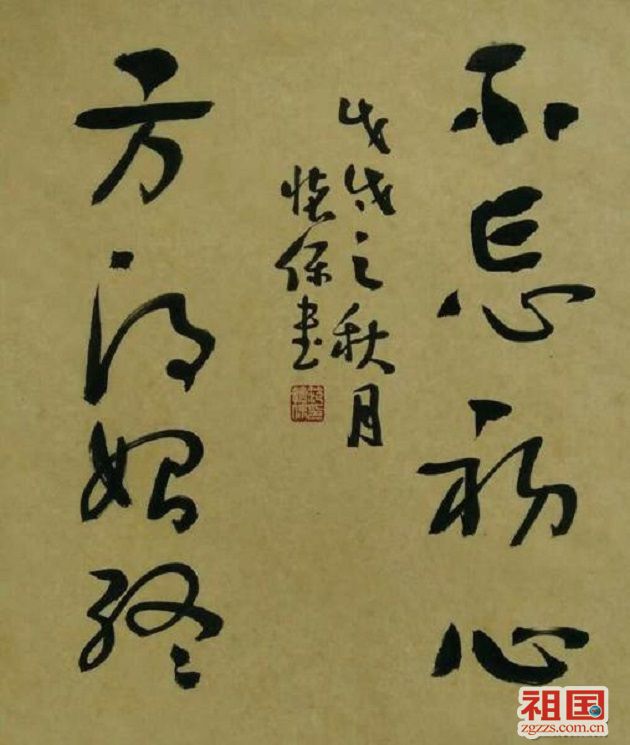 不忘初心
方得始终
戊戌之秋月
怀保书
祖国
zgzzs.com.cn